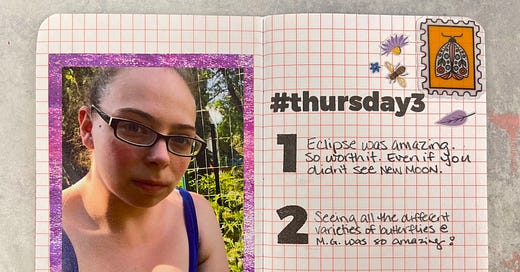 #thursday3
1 Eclipse was amazing.
So worth it. Even if you
didn't see NEW MOON.
2 Seeing all the different
varieties of butterflies @
M.G. was so amazing!